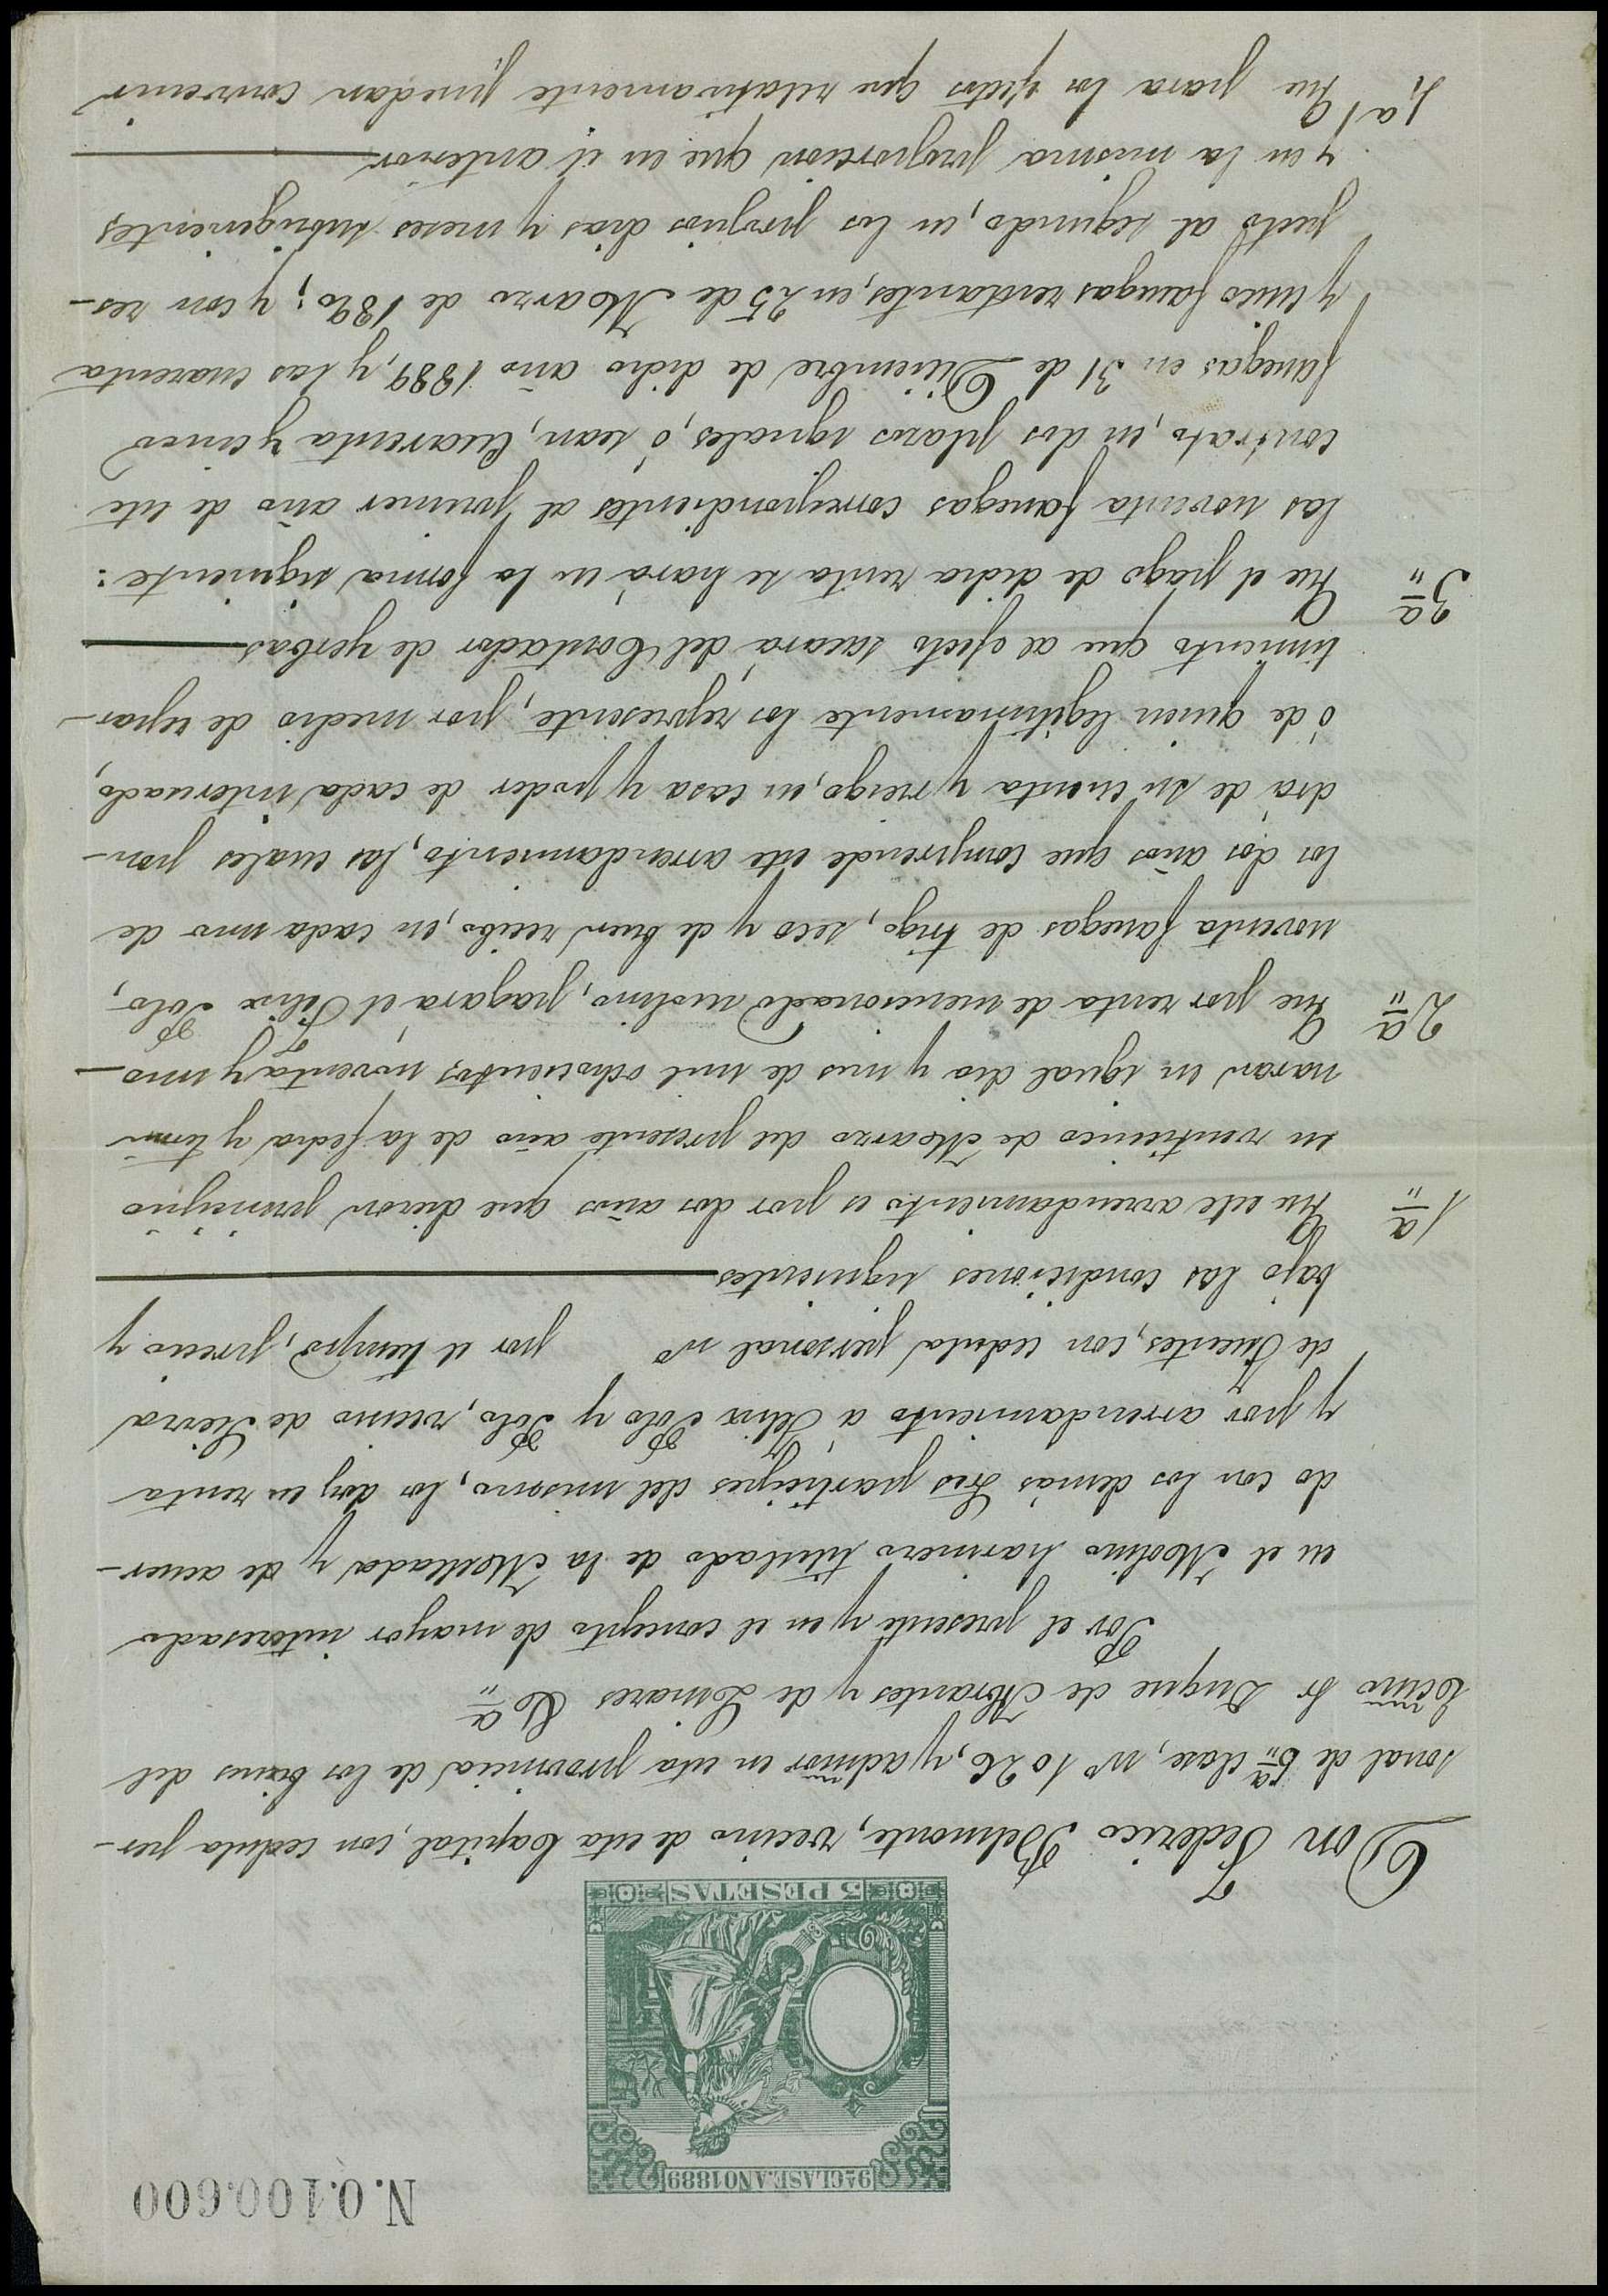 N. 0.100.600
9ª CLASE. AÑO 1889
5 PESETAS
Don Federico Belmonte, vecino de esta Capital, con cedula per-
sonal de 6ª clase, nº 1026, y admor en esta provincia de los bienes del
Excmo Sr Duque de Abrantes y de Linares &ª
Por el presente y en el concepto de mayor interesado
en el Molino harinero titulado de la Mellada y de acuer-
do con los demás tres participes del mismo, lo doy en renta
y por arrendamiento á Felix Polo y Polo, vecino de Sierra
de Fuentes, con cedula personal nº por el tiempo, precio y
bajo las condiciones siguientes
1ª Que este arrendamiento es por dos años que dieron principio
en veinticinco de Marzo del presente año de la fecha y termi
naran en igual dia y mes de mil ochocientos noventa y uno
2ª Que por renta de mencionado molino, pagará el Felix Polo,
noventa fanegas de trigo, seco y de buen recibo, en cada uno de
los dos años que comprende este arrendamiento, las cuales pon-
drá de su cuenta y riesgo, en casa y poder de cada interesado,
ó de quien legitimamente los represente, por medio de repar-
timiento que al efecto sacará del Contador de yerbas
3ª Que el pago de dicha renta se hará en la forma siguiente:
las noventa fanegas correspondientes al primer año de este
contrato, en dos plazos iguales, ó sean, cuarenta y cinco
fanegas en 31 de Diciembre de dicho año 1889, y las cuarenta
y cinco fanegas restantes, en 25 de Marzo de 1890; y con res-
pecto al segundo, en los propios dias y meses subsiguientes
y en la misma proporcion que en el anterior
4ª Que para los efectos que relativamente puedan convenir